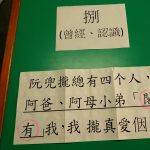 捌
(曾經、認識)
阮兜攏總有四个人,
阿爸、阿母小弟「閣
有」我,我攏真愛個